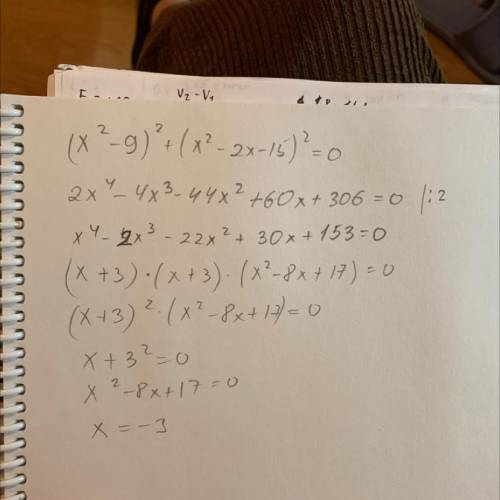 V₂-V₁
(x²-9)²+(x²-2x-15)²=0
2x⁴-4x³-44x²+60x+306=0 |:2
x⁴-2x³-22x²+30x+153=0
(x+3)·(x+3)·(x²-8x+17)=0
(x+3)²·(x²-8x+17)=0
x+3²=0
x²-8x+17=0
x=-3